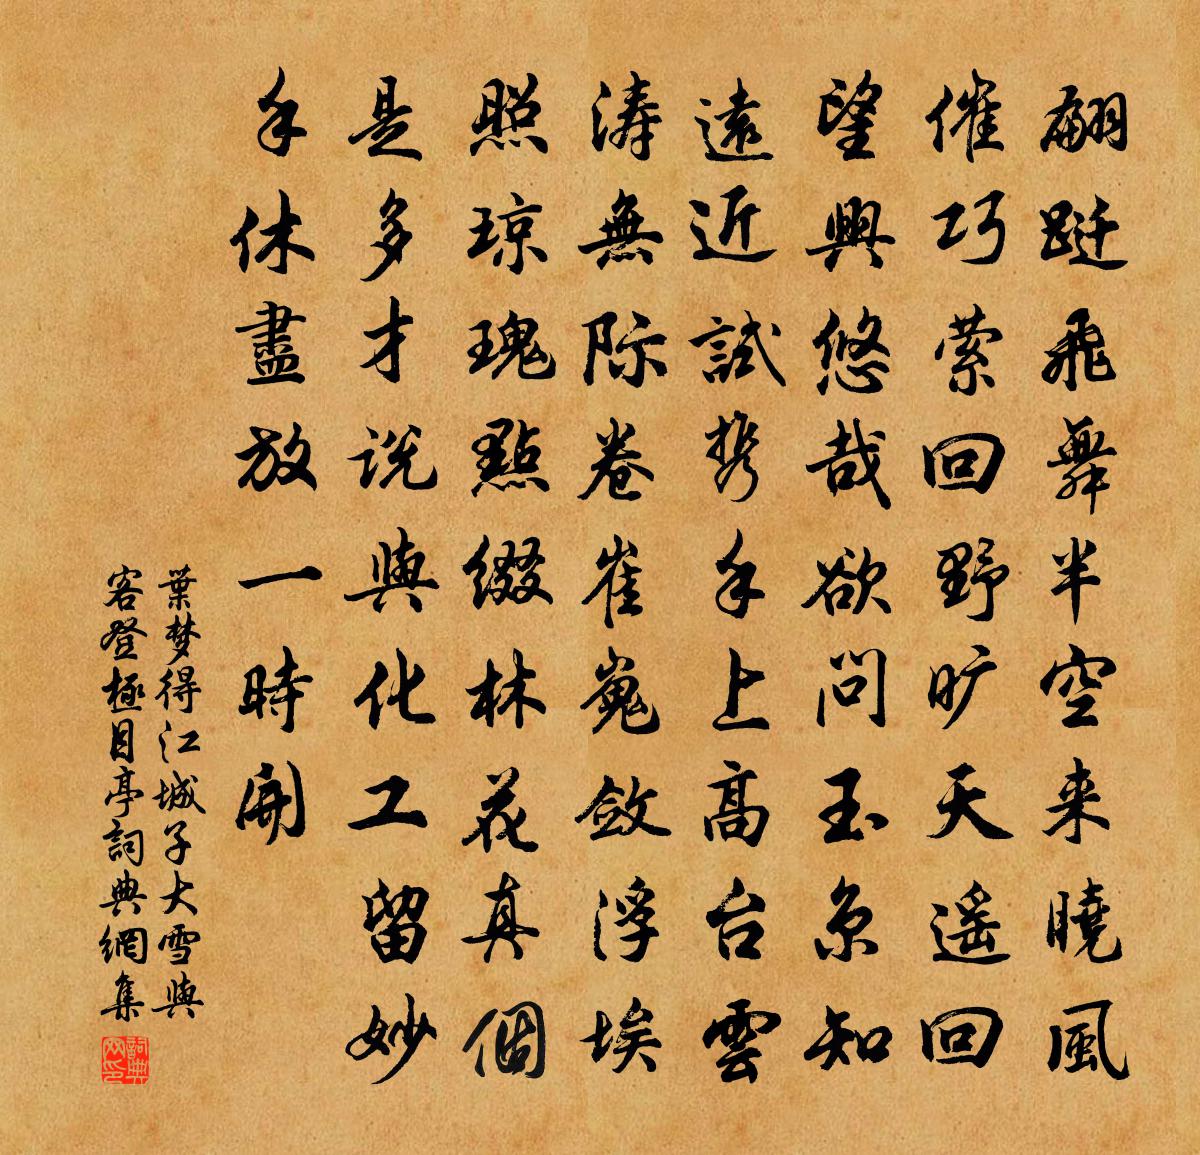 翩跹飛舞半空来曉風
催巧萦回野旷天遥回
望興悠哉欲問玉京知
遠近試携手上高台雲
涛無际卷崔嵬斂浮埃
照琼瑰點缀林花真個
是多才説與化工留妙
手休盡放一時開
葉梦得江城子大雪與
客登極目亭詞典網集
詞典
网印